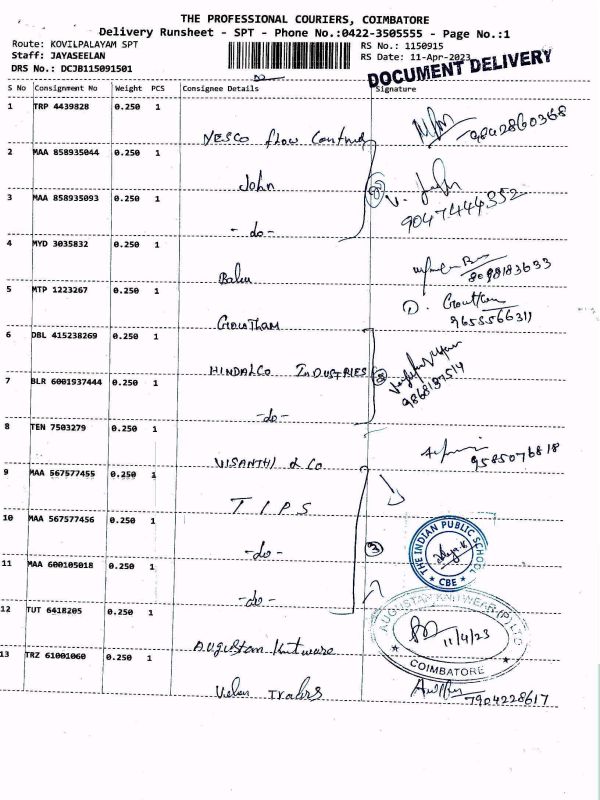 THE PROFESSIONAL COURIERS, COIMBATORE
Delivery Runsheet - SPT - Phone No.:0422-3505555 - Page No.:1
Route: KOVILPALAYAM SPT
RS No.: 1150915
Staff: JAYASEELAN
RS Date: 11-Apr-2023
DRS No.: DCJB115091501
DOCUMENT DELIVERY
S No Consignment No Weight PCS Consignee Details Signature
1 TRP 4439828 0.250 1
9842860368
2 MAA 858935044 0.250 1
John
9047444352
3 MAA 858935093 0.250 1
- do -
4 MYD 3035832 0.250 1
Balu
8098183633
5 MTP 1223267 0.250 1
Goutham
9655566311
6 DBL 415238269 0.250 1
HINDALCO INDUSTRIES
7 BLR 6001937444 0.250 1
- do -
8 TEN 7503279 0.250 1
VISANTHI & CO
9585076818
9 MAA 567577455 0.250 1
T I P S
10 MAA 567577456 0.250 1
- do -
3
THE INDIAN PUBLIC SCHOOL
* CBE *
11 MAA 600105018 0.250 1
- do -
12 TUT 6418205 0.250 1
Augustan Knitware
AUGUSTAN KNITWEAR (P) LTD
11/4/23
COIMBATORE
13 TRZ 61001060 0.250 1
7904228617